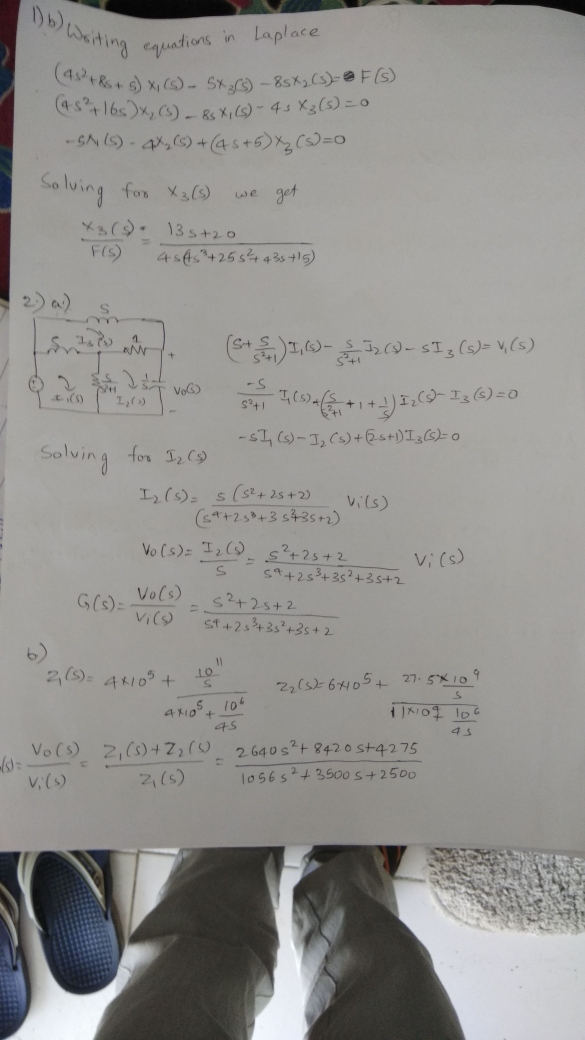 1) b) Writing equations in Laplace
(4s²+8s+5) X₁(s) - 5X₃(s) - 8sX₂(s) = F(s)
(4s²+16s) X₂(s) - 8s X₁(s) - 4s X₃(s) = 0
-5X₁(s) - 4X₂(s) + (4s+5) X₃(s) = 0
Solving for X₃(s) we get
X₃(s)/F(s) = (13s+20)/(4s(4s³+25s²+43s+15))
2) a)
s
s I₃(s) 1
I₁(s) s/(s²+1) I₂(s) 1/s + V₀(s) -
(s + s/(s²+1)) I₁(s) - s/(s²+1) I₂(s) - sI₃(s) = V₁(s)
-s/(s²+1) I₁(s) + (s/(s²+1) + 1 + 1/s) I₂(s) - I₃(s) = 0
-sI₁(s) - I₂(s) + (2s+1) I₃(s) = 0
Solving for I₂(s)
I₂(s) = s(s²+2s+2)/(s⁴+2s³+3s²+3s+2) Vi(s)
Vo(s) = I₂(s)/s = (s²+2s+2)/(s⁴+2s³+3s²+3s+2) Vi(s)
G(s) = Vo(s)/Vi(s) = (s²+2s+2)/(s⁴+2s³+3s²+3s+2)
b)
Z₁(s) = 4×10⁵ + (10¹¹/s)/(4×10⁵ + 10⁶/4s) Z₂(s) = 6×10⁵ + (27.5×10⁹/s)/(11×10⁹ 10⁶/4s)
(s) = Vo(s)/Vi(s) = (Z₁(s)+Z₂(s))/Z₁(s) = (2640s²+8420s+4275)/(1056s²+3500s+2500)